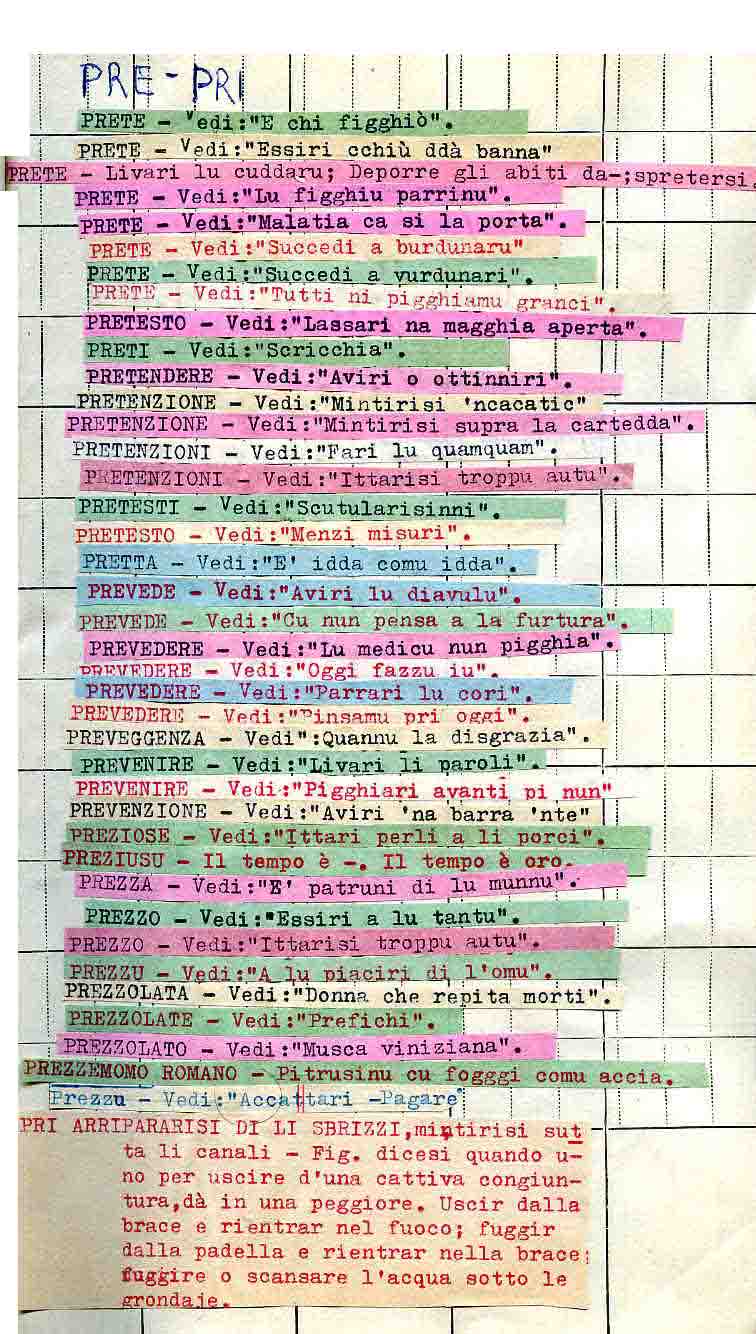 PRE - PRI
PRETE - Vedi:"E chi figghiò".
PRETE - Vedi:"Essiri cchiù ddà banna"
PRETE - Livari lu cuddaru; Deporre gli abiti da-;spretersi.
PRETE - Vedi:"Lu figghiu parrinu".
PRETE - Vedi:"Malatia ca si la porta".
PRETE - Vedi:"Succedi a burdunaru"
PRETE - Vedi:"Succedi a vurdunari".
PRETE - Vedi:"Tutti ni pigghiamu granci".
PRETESTO - Vedi:"Lassari na magghia aperta".
PRETI - Vedi:"Scricchia".
PRETENDERE - Vedi:"Aviri o ottinniri".
PRETENZIONE - Vedi:"Mintirisi 'ncacatic"
PRETENZIONE - Vedi:"Mintirisi supra la cartedda".
PRETENZIONI - Vedi:"Fari lu quamquam".
PRETENZIONI - Vedi:"Ittarisi troppu autu".
PRETESTI - Vedi:"Scutularisinni".
PRETESTO - Vedi:"Menzi misuri".
PRETTA - Vedi:"E' idda comu idda".
PREVEDE - Vedi:"Aviri lu diavulu".
PREVEDE - Vedi:"Cu nun pensa a la furtura".
PREVEDERE - Vedi:"Lu medicu nun pigghia".
PREVEDERE - Vedi:"Oggi fazzu iu".
PREVEDERE - Vedi:"Parrari lu cori".
PREVEDERE - Vedi:"Pinsamu pri oggi".
PREVEGGENZA - Vedi":Quannu la disgrazia".
PREVENIRE - Vedi:"Livari li paroli".
PREVENIRE - Vedi:"Pigghiari avanti pi nun"
PREVENZIONE - Vedi:"Aviri 'na barra 'nte"
PREZIOSE - Vedi:"Ittari perli a li porci".
PREZIUSU - Il tempo è -. Il tempo è oro.
PREZZA - Vedi:"E' patruni di lu munnu".
PREZZO - Vedi:"Essiri a lu tantu".
PREZZO - Vedi:"Ittarisi troppu autu".
PREZZU - Vedi:"A lu piaciri di l'omu".
PREZZOLATA - Vedi:"Donna che repita morti".
PREZZOLATE - Vedi:"Prefichi".
PREZZOLATO - Vedi:"Musca viniziana".
PREZZEMOMO ROMANO - Pitrusinu cu fogggi comu accia.
Prezzu - Vedi:"Accattari -Pagare"
PRI ARRIPARARISI DI LI SBRIZZI,mintirisi sut
ta li canali - Fig. dicesi quando u-
no per uscire d'una cattiva congiun-
tura,dà in una peggiore. Uscir dalla
brace e rientrar nel fuoco; fuggir
dalla padella e rientrar nella brace;
fuggire o scansare l'acqua sotto le
grondaje.